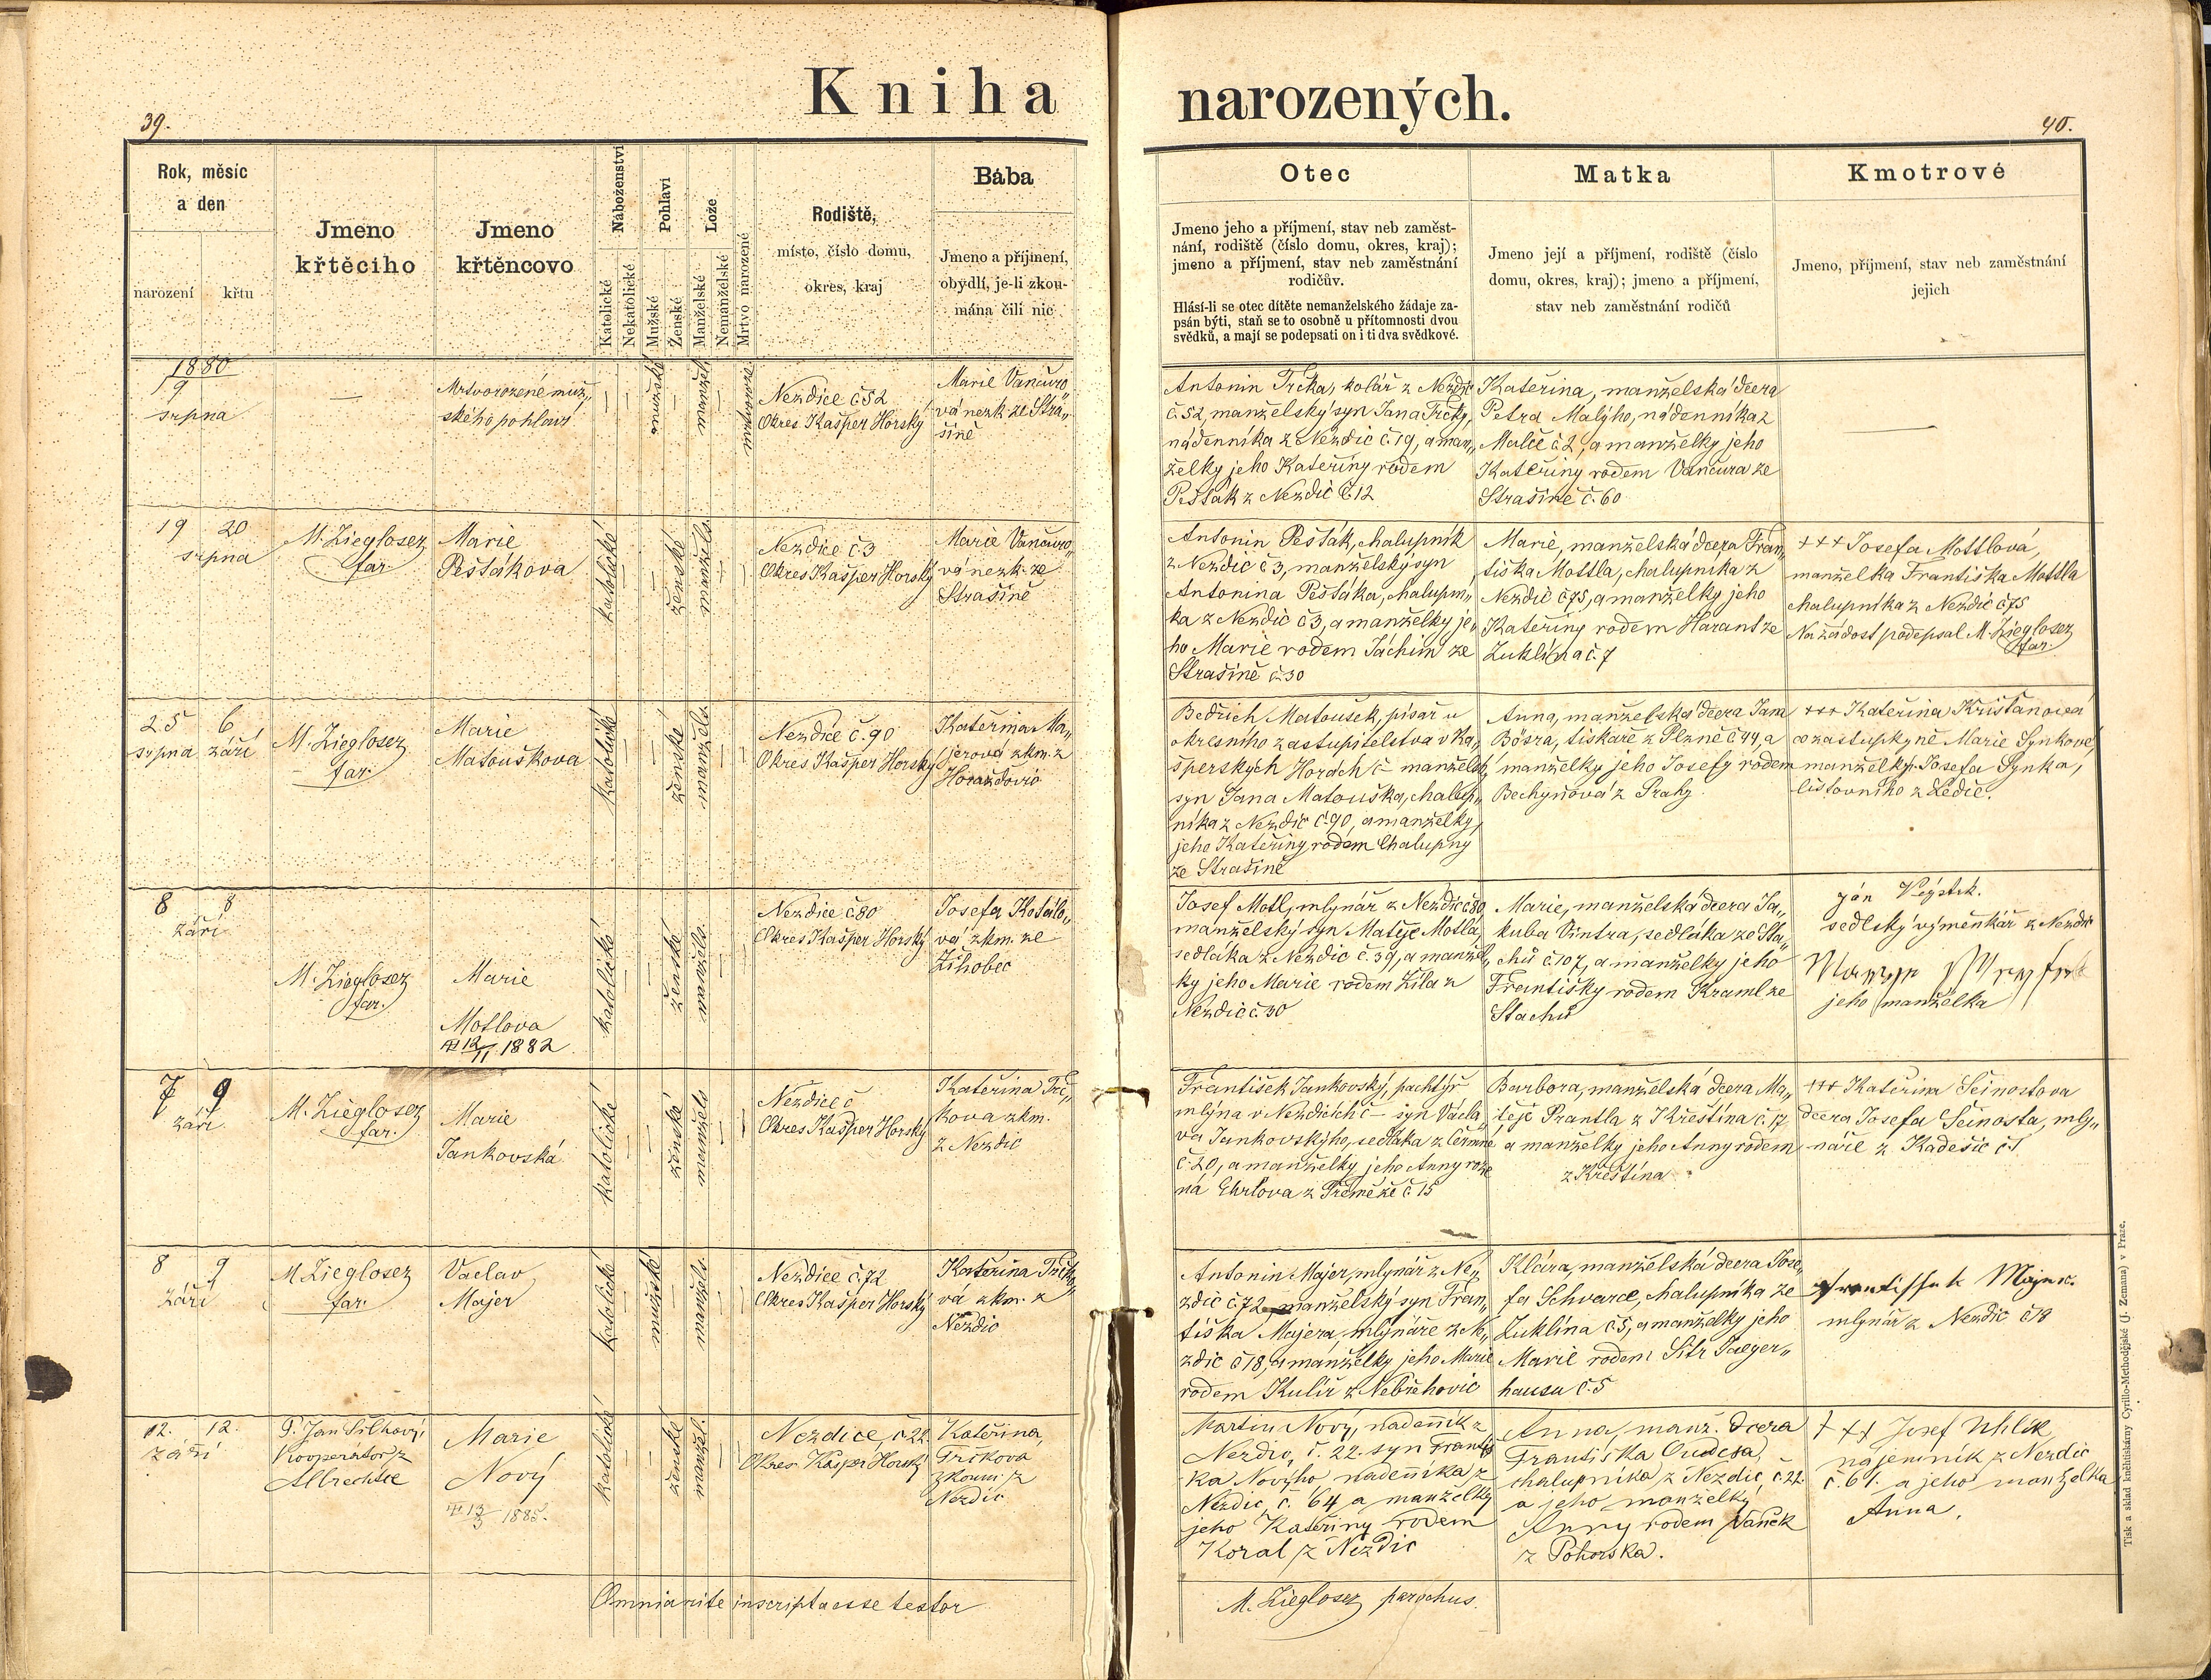 Kniha
narozených.
39.
40.
Rok, měsíc
a den
narození křtu
Jmeno
křtěcího
Jmeno
křtěncovo
Náboženství
Katolické
Nekatolické
Pohlaví
Mužské
Ženské
Lože
Manželské
Nemanželské
Mrtvo narozené
Rodiště,
místo, číslo domu,
okres, kraj
Bába
Jmeno a příjmení,
obydlí, je-li zkou-
mána čili nic
Otec
Jmeno jeho a příjmení, stav neb zaměst-
nání, rodiště (číslo domu, okres, kraj);
jmeno a příjmení, stav neb zaměstnání
rodičův.
Hlásí-li se otec dítěte nemanželského žádaje za-
psán býti, staň se to osobně u přítomnosti dvou
svědků, a mají se podepsati on i ti dva svědkové.
Matka
Jmeno její a příjmení, rodiště (číslo
domu, okres, kraj); jmeno a příjmení,
stav neb zaměstnání rodičů
Kmotrové
Jmeno, příjmení, stav neb zaměstnání
jejich
1880
19
srpna
—
Mrtvorozené muž„
ského pohlaví
mužské
manžel
Nezdice č 52
Okres Kašper Horský
Marie Vančuro„
vá nezk ze Stra„
šině
Antonin Trčka, kolář z Nezdic
č. 52, manželský syn Jana Trčky,
nádenníka z Nezdic č. 19, a man„
želky jeho Kateřiny rodem
Pešťák z Nezdic č. 12
Kateřina, manželská dcera
Petra Malýho, nádenníka z
Malče č 2, a manželky jeho
Kateřiny rodem Vančura ze
Strašině č. 60
—
19 20
srpna
M. Zieglosez
far.
Marie
Pešťákova
katolické
ženské
manžels.
Nezdice č 3
Okres Kašper Horský
Marie Vančuro„
vá nezk. ze
Strašině
Antonin Pešťák, chalupník
z Nezdic č 3, manželský syn
Antonina Pešťáka, chalupní„
ka z Nezdic č 3, a manželky je„
ho Marie rodem Jáchim ze
Strašině č 30
Marie, manželská dcera Fran„
tiška Mottla, chalupníka z
Nezdic č 75, a manželky jeho
Kateřiny rodem Harant ze
Zuklína č. 7
+++ Josefa Mottlová,
manželka Františka Mottla
chalupníka z Nezdic č 75
Na žádost podepsal M. Zieglosez
far.
25 6
srpna září
M. Zieglosez
far.
Marie
Matouškova
katolické
ženské
manžels.
Nezdice č. 90
Okres Kašper Horský
Kateřina Ma„
jerová zkm. z
Horažďovic
Bedřich Matoušek, písař u
okresního zastupitelstva v Ka„
šperskych Horách č – manželský
syn Jana Matouška, chalup„
níka z Nezdic č. 90, a manželky
jeho Kateřiny rodem Chalupny
ze Strašině
Anna, manželská dcera Jana
Bösza, tiskaře z Plzně č 44, a
manželky jeho Josefy rodem
Bechyňova z Prahy
+++ Kateřina
co zastupkyně Marie Synkové
manželky Josefa Synka,
listovního z
8 8
září
M. Zieglosez
far.
Marie
Motlova
12/11 1882
katolické
ženské
manžels.
Nezdice č 80
Okres Kašper Horský
Josefa
vá zkm. ze
Žihobec
Josef Motl, mlynář z Nezdic č 80
manželský syn Matěje Motla
sedláka z Nezdic č. 39, a manžel„
ky jeho Marie rodem Zíla z
Nezdic č. 30
Marie, manželská dcera Ja„
kuba Vintra, sedláka ze Sta„
chů č. 107, a manželky jeho
Františky rodem Kraml ze
Stachů
Ján
sedlský výměnkář z Nezdic
jeho manželka
7 9
září
M. Zieglosez
far.
Marie
Jankovská
katolické
ženské
manžels
Nezdice č
Okres Kašper Horský
Kateřina Trč„
kova zkm.
z Nezdic
František Jankovský, pachtýř
mlýna v Nezdicích č – syn Václa„
va Jankovskýho, sedláka z
č 20, a manželky jeho Anny roze
ná
Barbora, manželská dcera Ma„
těje Prantla z Křeštína č. 17
a manželky jeho Anny rodem
z Křeštína
+++ Kateřina Šeinostova
dcera Josefa Šeinosta, mly„
náře z Kadešic č 1
8 9
září
M. Zieglosez
far.
Vaclav
Majer
katolické
mužské
manžels.
Nezdice č. 72
Okres Kašper Horský
Kateřina Trčko„
vá zkm. z
Nezdic
Antonin Majer, mlynář z Ne„
zdic č. 72 manželský syn Fran„
tiška Majera, mlynáře z Ne„
zdic č 18, a manželky jeho Marie
rodem Kulíř z Nebřehovic
Klára, manželská dcera Jose„
fa Schvarce, chalupníka ze
Zuklína č. 5, a manželky jeho
Marie rodem
hausu č. 5
Frantissek Majer
mlynář z Nezdic č 18
12. 12.
září
P. Jan Šilhavý
kooperátor z
Albrechtic
Marie
Nový
13/3 1885.
katolické
ženské
manžel.
Nezdice, č. 22.
Okres Kašper Horský
Kateřina,
Trčkova
zkoum. z
Nezdic
Martin Nový, nadeník z
Nezdic, č. 22. syn Františ
ka Novýho nadeníka z
Nezdic, č. 64 a manželky
jeho Kateřiny rodem
Koral z Nezdic
Anna, manž. dcera
Františka
chalupníka z Nezdic, č. 22.
a jeho manželky
Anny rodem Vaněk
z Pohorska.
+++ Josef Uhlík,
nájemník z Nezdic
č. 61. a jeho manželka
Anna.
Omnia rite inscripta esse testor
M. Zieglosez parochus.
Tisk a sklad kněhtiskárny Cyrillo-Methodějské (J. Zemana) v Praze.